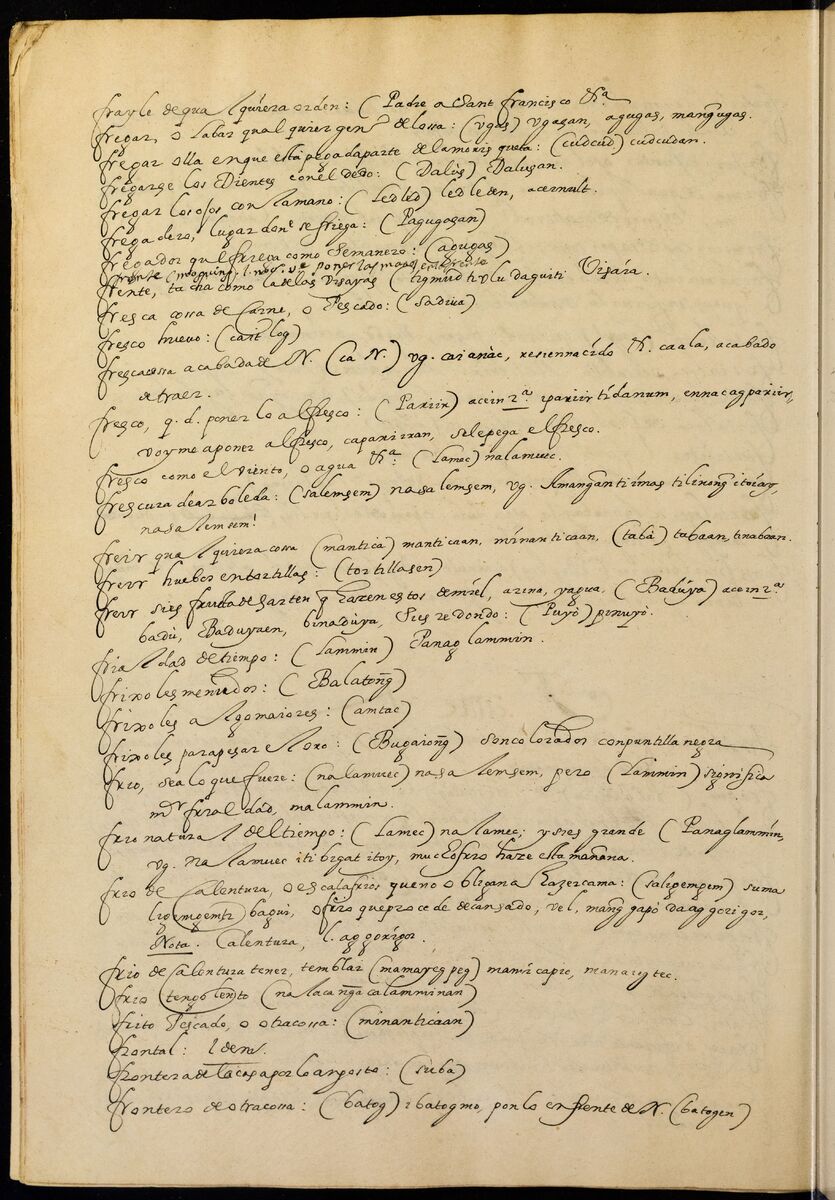 frayle de qualquiera orden: (Padre a Sant Francisco &.ª
fregar, o labar qual quier gen.º de losa: (vgas) vgasan, agugas, mangugas.
fregar olla en que està pegada parte de la morisqueta: (cudcud) cudcudan.
fregarse los dientes con el dedo: (Dalùs) Dalusan.
fregar los ojos con la mano: (Ledled) ledleden,
fregadero, lugar don.e se friega: (Pagugasan)
fregador que friega como Semanero: (agugas)
frente
frente, tacha como la de los visayas (tigmud ti vlu daguiti Visára.
fresca cossa de Carne, o Pescado: (sadiua)
fresco huevo: (cait log)
fresca cossa acabada de N. (ca N.) vg. caianàc, resien nacído &. caala, acabado
de traer.
fresco, q. d. ponerlo al fresco: (Pariir) acein 2.ª ipariir tídanum, ennacagpariir,
voyme a poner al fresco, caparirran, se le pega el fresco.
fresco como el viento, o agua &.ª (Lamec) nalamuec.
frescura de arboleda: (salemsem) nasalemsem, vg.
nasalemsem!
freir qualquiera cossa (mantica) manticaan, minanticaan, (tabà) tabaan, tinabaan.
freir huebos en tortillas: (tortillasen)
freir si es fruta de sarten q hazen estos de miel, arina, yagua, (Badúya) acein 2.ª
badu, Baduyaen, binadùya, si es redondo: (Puyò) pinuyò.
frialdad de tiempo: (Lammin) Panaglammin.
frixoles menudos: (Balatong)
frixoles algo maiores: (amtac)
frixoles para pesar el oro: (Bugaiong) son colorados con puntilla negra
frio, sea lo que fuere: (nalamuec) nasalemsem, pero (Lammin) significa
m.r frialdád, malammin.
frio natural del tiempo: (Lamec) nalamec; y si es grande (Panaglammin,
vg. nalamuec iti bigat itoy, mucho frio haze esta mañana.
frio de Calentura, o escalafrios que no obligan a hazer cama: (saligemgem) suma
ligemgem ti bagui, o frio que procede de cansado, vel, mang gapò da aggorigor,
Nota. Calentura, l. aggorígor.
frio de Calentura tener, temblar (mamayegpeg)
frio tengo lento (nalacanga calamminan)
frito Pescado, o otra cossa: (minanticaan)
frontal: Idem.
frontera de la casa por lo angosto: (suba)
frontero de otra cossa: (batog) ibatogmo, ponlo en frente de N. (batogen)